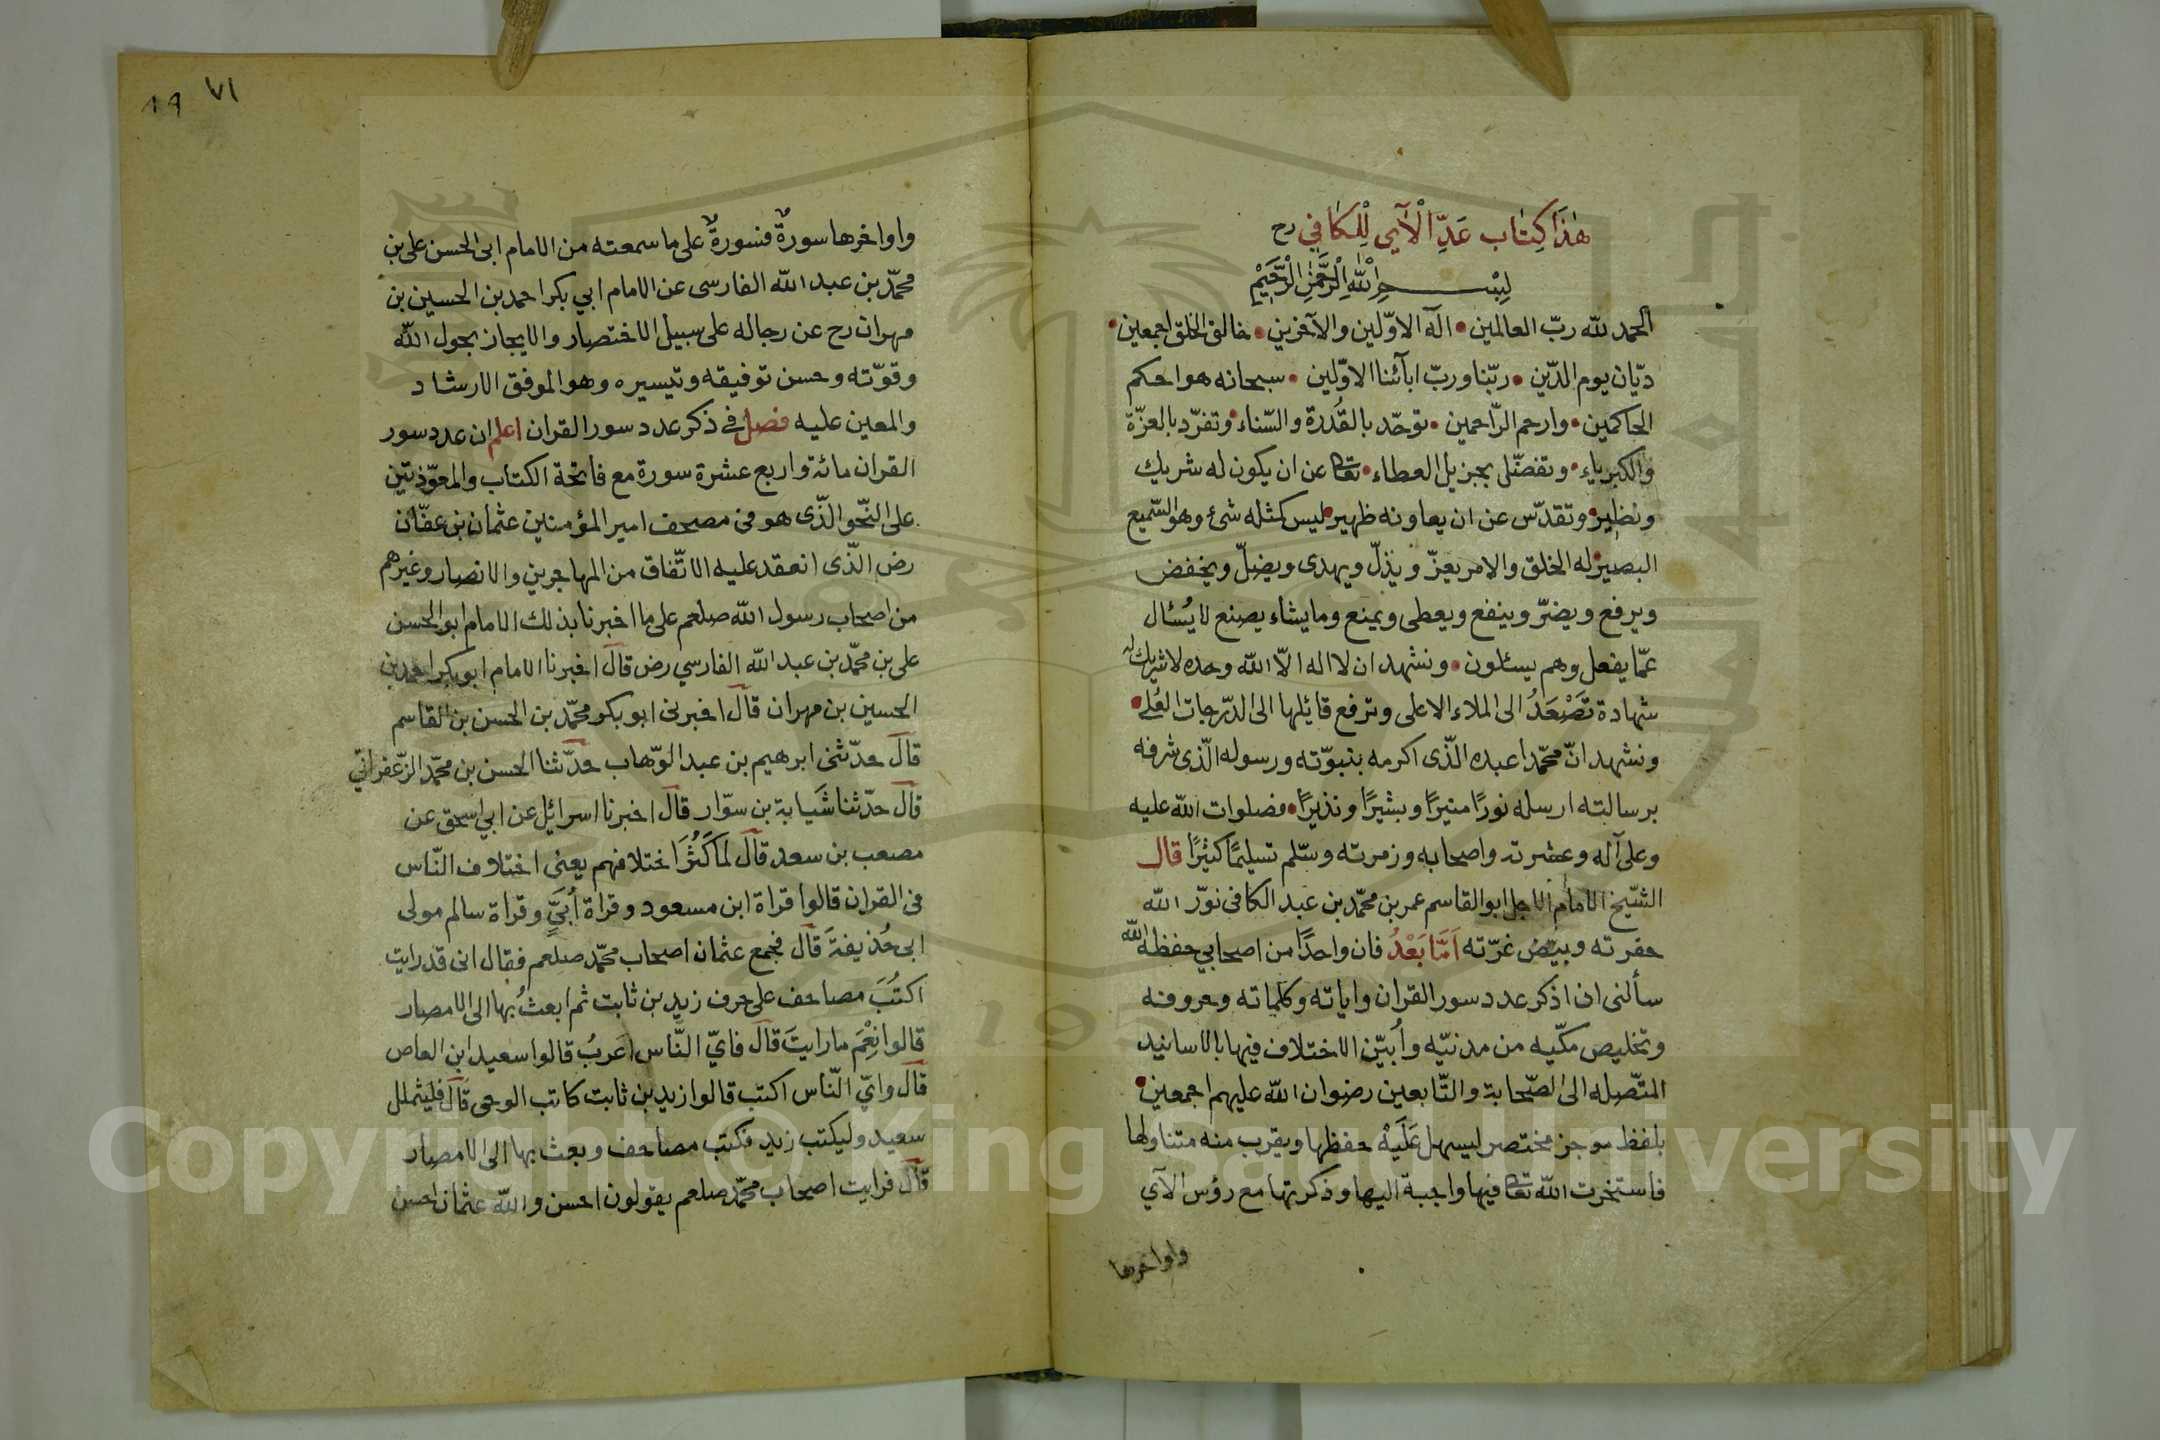 هٰذَا كِتَاب عَدِّ الْآيِ لِلْكَافِي رح
بِسْمِ اللّٰهِ الرَّحْمٰنِ الرَّحِيْمِ
الحمد للّه ربّ العالمين • الٓه الاوّلين والآخرين • خالق الخلق اجمعين •
ديّان يوم الدّين • ربّنا وربّ ابآئنا الاوّلين • سبحانه هو احكم
الحاكمين • وارحم الرّاحمين • توحّد بالقُدرة والسّناء • وتفرّد بالعزّة
والكبرياء • وتفضّل بجزيل العطاء • تعا عن ان يكون له شريك
ونظير • وتقدّس عن ان يعاونه ظهير • ليس كمثله شئ وهو السّميع
البصير • له الخلق والامر يعزّ ويذلّ ويهدى ويضلّ ويخفض
ويرفع ويضرّ وينفع ويعطى ويمنع وما يشاء يصنع لا يُسْال
عمّا يفعل وهم يسئلون • ونشهد ان لا اله الّا اللّه وحده لا شريك له
شهادة تَصْعَدُ الى الملاء الاعلى وترفع قائلها الى الدّرجات العُلے •
ونشهد انّ محمّدا عبده الّذى اكرمه بنبوّته ورسوله الّذى شرفه
برسالته ارسله نورًا منيرًا وبشيرًا ونذيرًا • فصلوات اللّه عليه
وعلى آله وعشرته واصحابه وزمرته وسّلم تسليمًا كثيرًا قال
الشّيخ الامام الاجل ابو القاسم عمر بن محمّد بن عبد الكافى نوّر اللّه
حفرته وبيّض غرّته اَمَّا بَعْدُ فان واحدًا من اصحابي حفظه اللّه
سألنى ان اذكر عدد سور القران واياته وكلماته وحروفه
وتخليص مكّيه من مدنيّه وأُبيّن الاختلاف فيها بالاسانيد
المتّصله الى الصّحابة والتّابعين رضوان اللّه عليهم اجمعين •
بلفظ موجز مختصر ليسهل عَلَيْه حفظها ويقرب منه متناولها
فاستخرت اللّه تعا فيها واجبة اليها وذكرتها مع رؤس الآي
واواخرها
٧١ ١٩
واواخرها سورةً فسورةً على ما سمعته من الامام ابى الحسن على بن
محمّد بن عبد اللّه الفارسى عن الامام ابي بكر احمد بن الحسين بن
مهران رح عن رجاله على سبيل الاختصار والايجاز بحول اللّه
وقوّته وحسن توفيقه وتيسيره وهو الموفق الارشاد
والمعين عليه فصل فے ذكر عدد سور القران اعلم ان عدد سور
القران مائة واربع عشرة سورة مع فاتحة الكتاب والمعوّذتين
على النّحو الّذى هو فى مصحف امير المؤمنين عثمان بن عفّان
رض الّذى انعقد عليه الاتّفاق من المهاجرين والانصار وغيرهم
من اصحاب رسول اللّه صلعم على ما اخبرنا بذلك الامام ابو الحسن
على بن محمّد بن عبد اللّه الفارسي رض قال اخبرنا الامام ابو بكر احمد بن
الحسين بن مهران قال اخبرنى ابو بكر محمّد بن الحسن بن القاسم
قال حدّثنى ابرهيم بن عبد الوّهاب حدّثنا الحسن بن محمّد الزّعفرانّي
قال حدّثنا شَيابة بن سوّار قال اخبرنا اسرائيل عن ابي اسحق عن
مصعب بن سعد قال لما كَثُرَ اختلافهم يعنى اختلاف النّاس
فى القران قالوا قراة ابن مسعود وقراة أُبَيٍّ وقراة سالم مولى
ابى حُذيفة قال فجمع عثمان اصحاب محمّد صلعم فقال انى قد رايت
اكتُبَ مصاحف على حرف زيد بن ثابت ثم ابعثُ بها الى الامصار
قالوا نِعْمَ ما رايتَ قال فايّ النّاس اعربُ قالوا سعيد ابن العاص
قال وايّ النّاس اكتب قالوا زيد بن ثابت كاتب الوحى قال فليثملل
سعيد وليكتب زيد فكتب مصاحف وبعث بها الى الامصار
قال فرايت اصحاب محمّد صلعم يقولون احسن واللّه عثمان احسن
Copyright © King Saud University